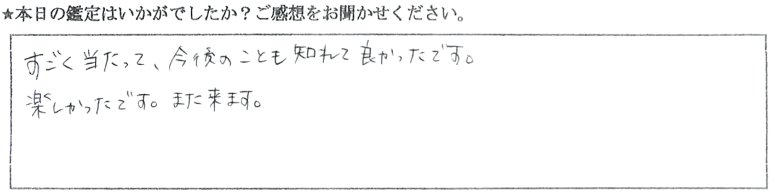 ★本日の鑑定はいかがでしたか？ご感想をお聞かせください。
すごく当たって、今後のことも知れて良かったです。
楽しかったです。また来ます。